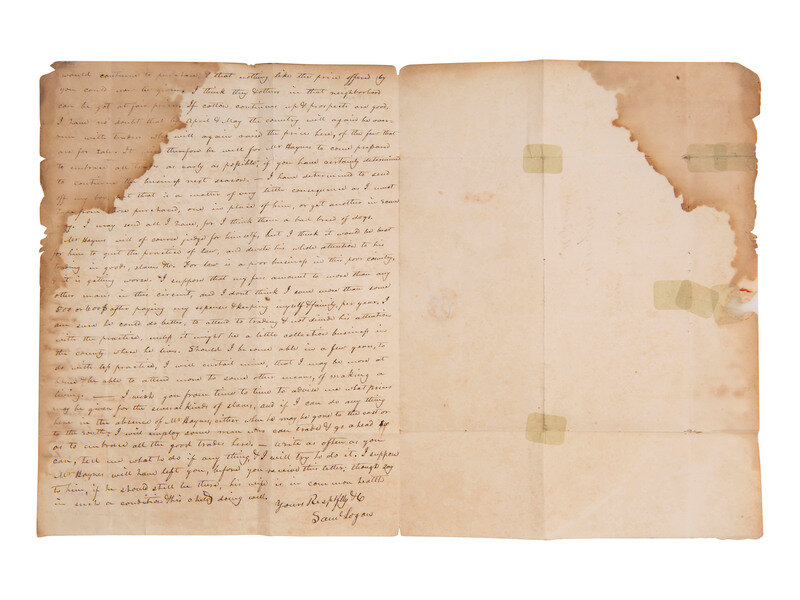 would continue to purchase, & that nothing like the price offered by
you could now be given. I think they & others in that neighborhood
can be got at fair prices. If cotton continues up & prospects are good,
I have no doubt that in April & May the country will again be over-
run with traders who will again raise the price here, of the few that
are for sale. It will therefore be well for Mr Haynes to come prepared
to embrace all as early as possible, if you have certainly determined
to continue the business next season. — I have determined to send
off my but that is a matter of very little consequence as I must
purchased, one in place of him, or get another in some
I may send all I have, for I think them a bad breed of dogs.
Mr Haynes will of course judge for himself, but I think it would be best
for him to quit the practice of law, and devote his whole attention to his
trading in goods, slaves &c. For law is a poor business in this poor country,
& it is getting worse. I suppose that my fees amount to more than any
other man in this circuit, and I dont think I save more than some
500 or 600$ after paying my expenses & keeping myself & family, per year. I
am sure he could do better, to attend to trading & not divide his attention
with the practice, unless it might be a little collection business in
the county where he lives. Should I become able in a few years, to
do with less practice, I will curtail mine, that I may be more at
home & be able to attend more to some other means, of making a
living. — I wish you from time to time to advise me what prices
may be given for the several kinds of slaves, and if I can do any thing
here in the absence of Mr Haynes, either when he may be gone to the east or
to the south, I will employ some man who can trade & go ahead so
as to embrace all the good trades here — write as often as you
can, tell me what to do if any thing, & I will try to do it. I suppose
Mr Haynes will have left you, before you receive this letter, though say
to him, if he should still be there, his wife is in common health
in such a condition & his child doing well.
Yours Respflly &c
Saml Logan